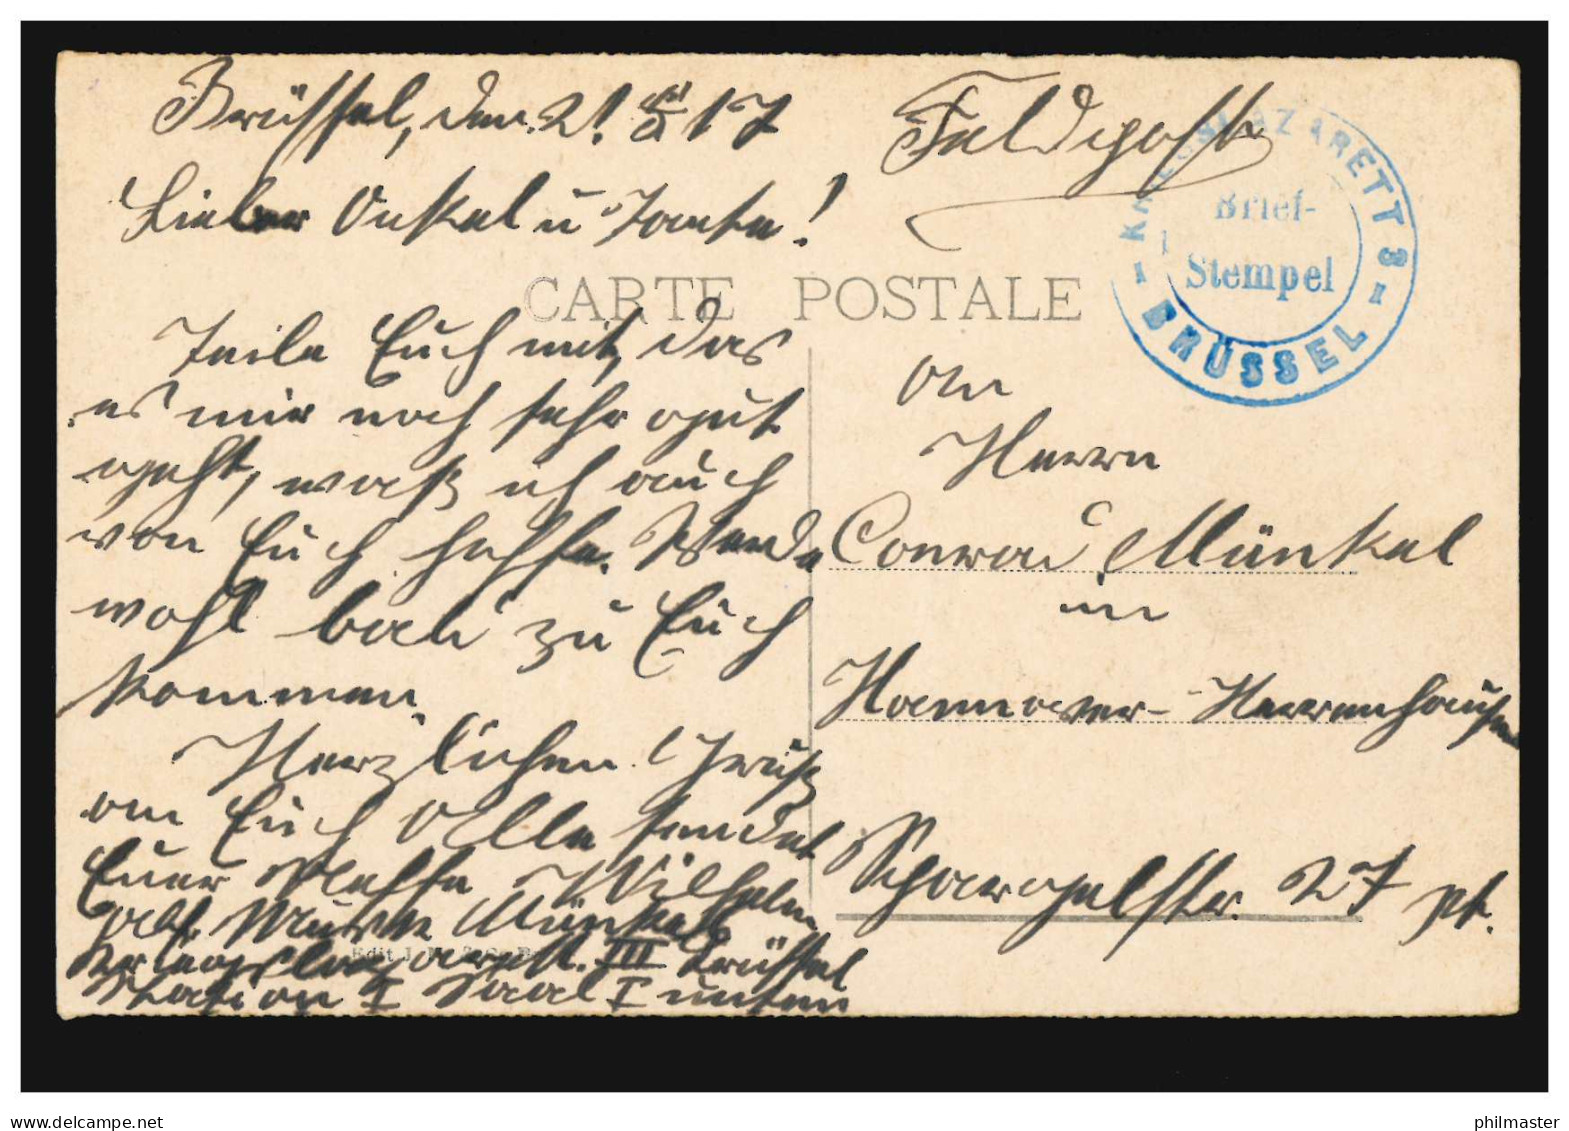 Brüssel, den 21. 17
Feldpost
Lieber Onkel u Tante!
KRIEGSLAZARETT 3
Brief-
Stempel
BRÜSSEL
CARTE POSTALE
Teile Euch mit, das
es mir noch sehr gut
geht, waß ich auch
von Euch hoffe. Werde
wohl bald zu Euch
kommen.
Herzlichen Gruß
an Euch Alle sendet
Euer Neffe Wilhelm
Münkel
Kriegslazarett. III Brüssel
Station I Saal I unten
An
Herrn
Conrad Münkel
in
Hannover-Herrenhausen
27 pt.
www.delcampe.net
philmaster